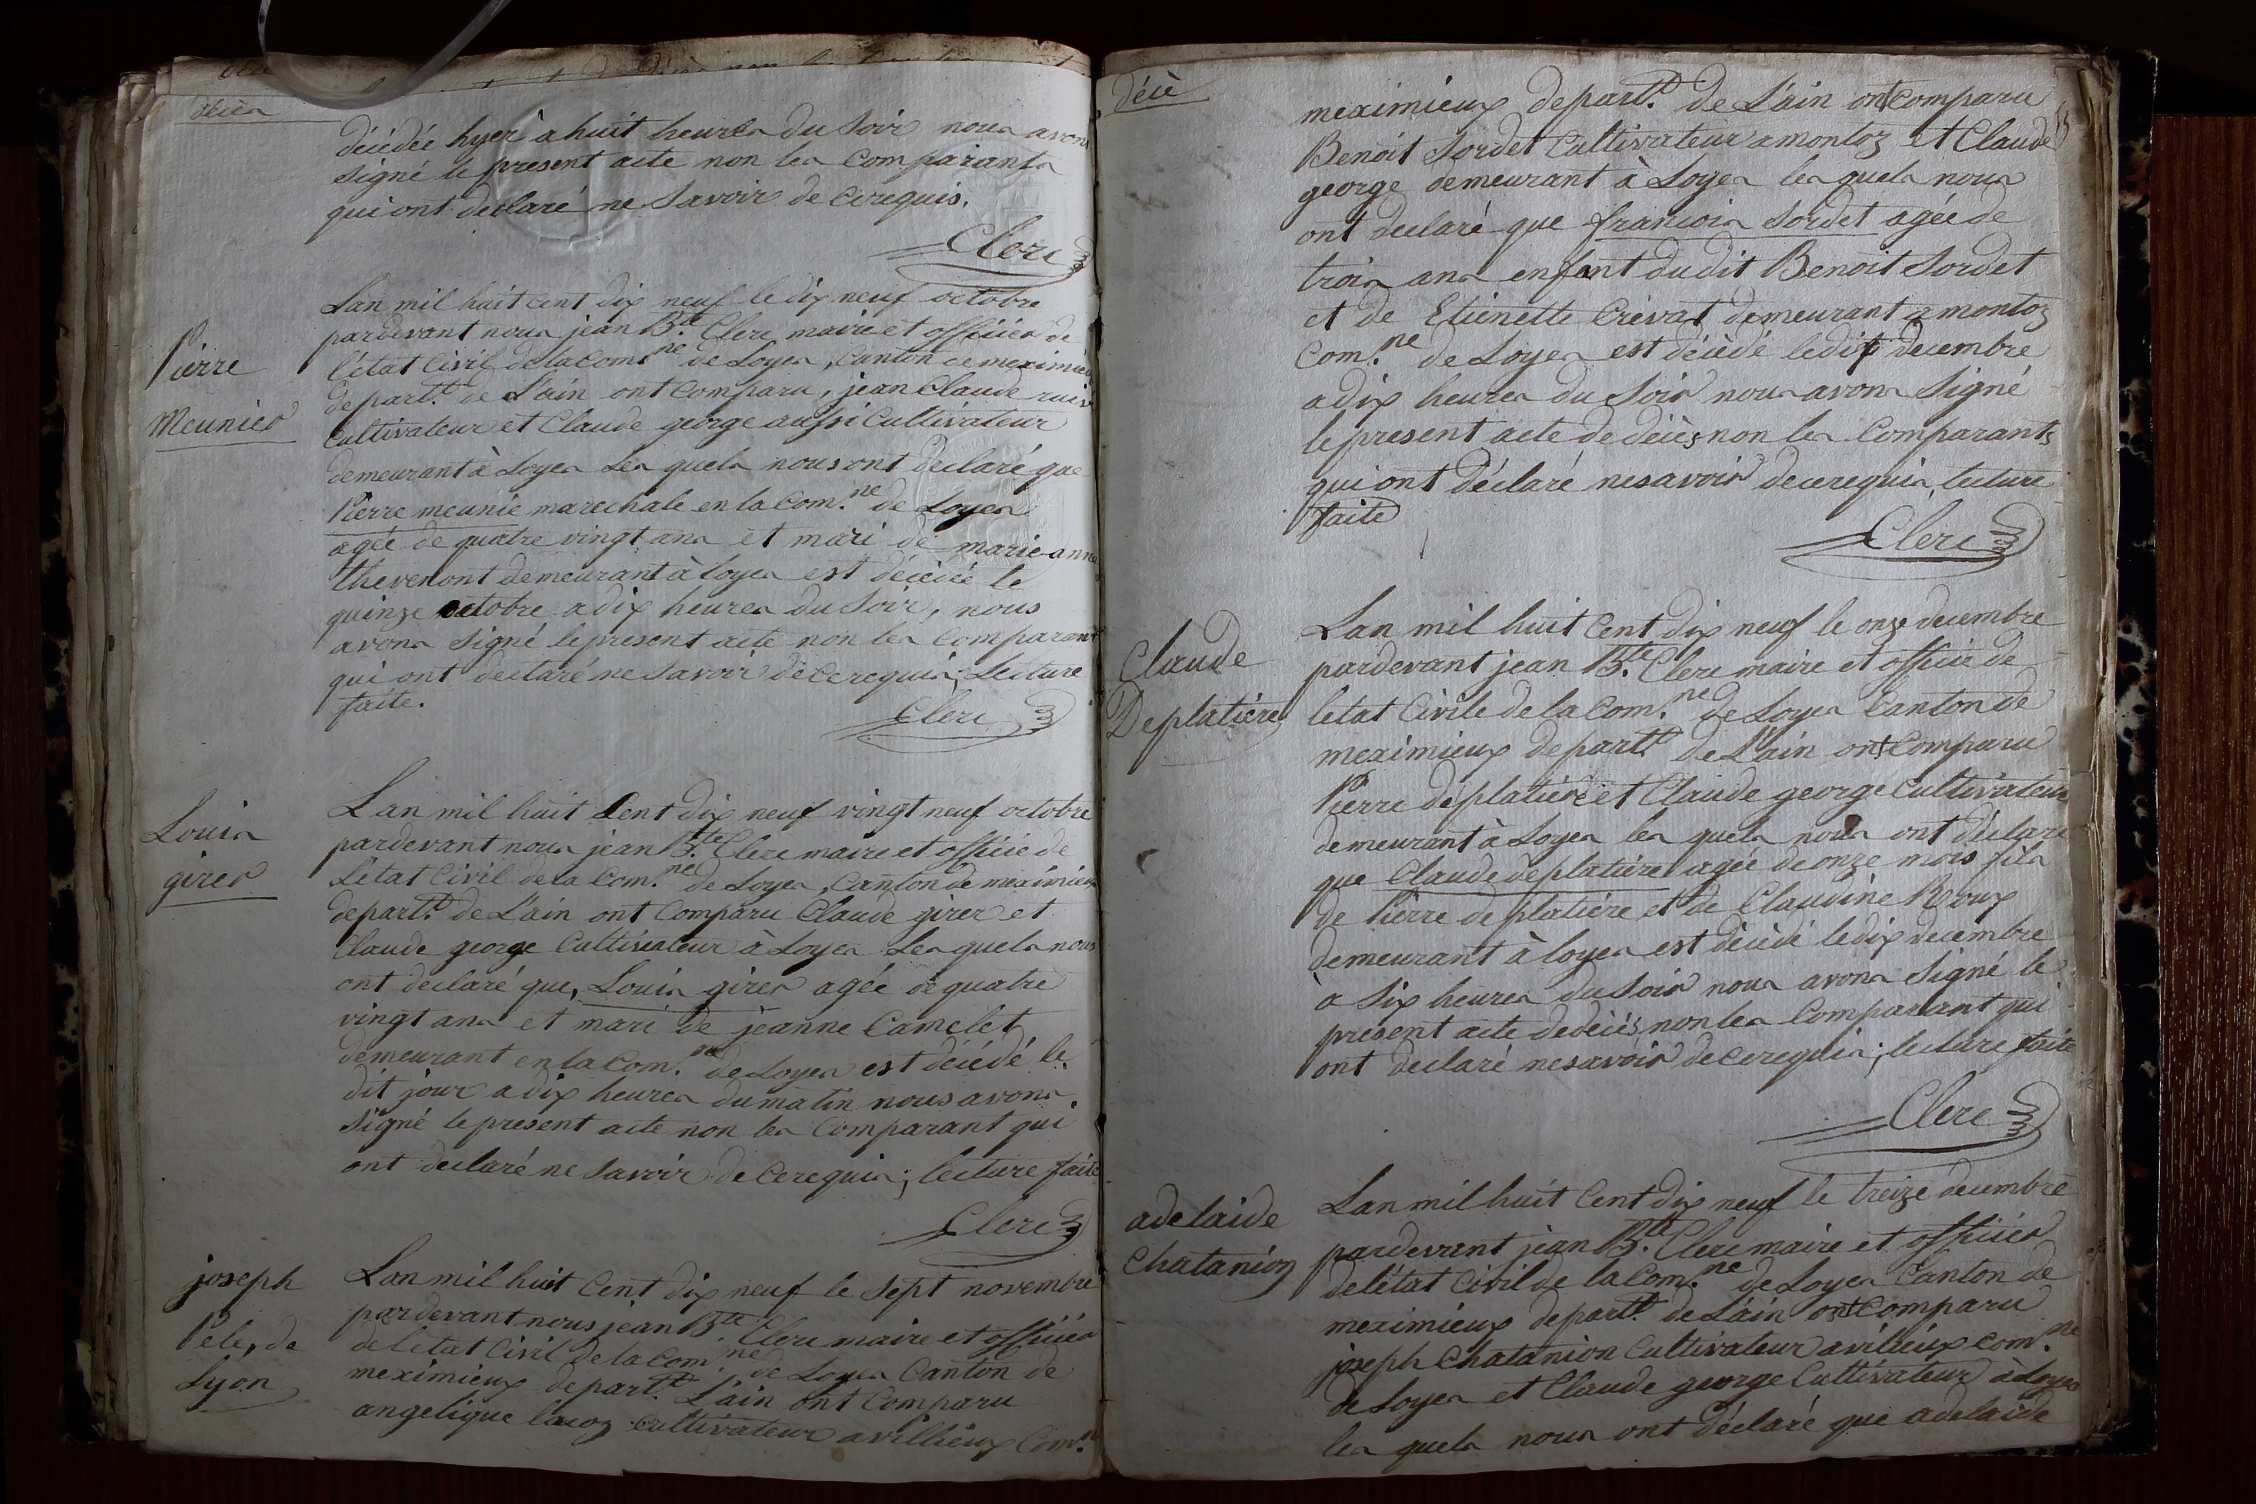 décès
décédée hyer à huit heures du Soir nous avons
signé le present acte non les Comparants
qui ont declaré ne Savoir de ce requis.
Clerc
Pierre
Meunier
Lan mil huit cent dix neuf le dix neuf octobre
pardevant nous jean B.te Clerc maire et officier de
l'état Civil de la Com.ne de Loyes, Canton de meximieu
depart.t de L'ain ont Comparu, jean Claude
Cultivateur et Claude george aussi Cultivateur
demeurant à Loyes Les quels nous ont declaré que
Pierre meunie marechale en la Com.ne de Loyes
agée de quatre vingt ans et mari de marie anne
thevenont demeurant à loyes est décédé le
quinze octobre a dix heures du Soir, nous
avons Signé le present acte non les Comparant
qui ont declaré ne Savoir de ce requis; Lecture
faite.
Clerc
Louis
girer
Lan mil huit Cent dix neuf vingt neuf octobre
pardevant nous jean B.te Clerc maire et officié de
L'état Civil de la Com.ne de Loyes, Canton de meximieux
depart.t de L'ain ont Comparu Claude girer et
Claude george Cultivateur à Loyes Les quels nous
ont declaré que, Louis girer agée de quatre
vingt ans et mari de jeanne Camelet
demeurant en la Com.ne de Loyes est décédé le
dit jour a dix heures du matin nous avons
Signé le present acte non les Comparant qui
ont declaré ne Savoir de ce requis; lecture faite
Clerc
joseph
Pele, de
Lyon
Lan mil huit Cent dix neuf le Sept novembre
pardevant nous jean B.te Clerc maire et officier
de l'état Civil de la Com.ne de Loyes Canton de
meximieux depart.t L'ain ont Comparu
angelique Cultivateur a villieux Com.ne
décè
meximieux depart.t de L'ain ont Comparu
Benoit Sordet Cultivateur a montoz et Claude
george demeurant à Loyes les quels nous
ont declaré que francois Sordet agée de
trois ans enfant dudit Benoit Sordet
et de Etienette Crevat demeurant a montoz
Com.ne de Loyes est décédé le dix decembre
a dix heures du Soir nous avons Signé
le present acte de décès non les Comparants
qui ont déclaré ne savoir de ce requis, lecture
faite
Clerc
Claude
Deplatière
Lan mil huit Cent dix neuf le onze decembre
pardevant jean B.te Clerc maire et officié de
létat Civile de la Com.ne de Loyes Canton de
meximieux depart.t de L'ain ont Comparu
Pierre deplatière et Claude george Cultivateur
demeurant à Loyes les quels nous ont déclaré
que Claude deplatiere agée de onze mois fils
de Pierre deplatiére et de Claudine Roux
demeurant à loyes est décédé le dix decembre
à Six heures du Soir nous avons Signé le
present acte de décès non les Comparant qui
ont declaré ne savoir de ce requis; lecture faite
Clerc
adelaide
Chatanion
Lan mil huit Cent dix neuf le treize decembre
pardevant jean B.te Clerc maire et officier
de létat Civil de la Com.ne de Loyes Canton de
meximieux depart.t de L'ain ont Comparu
joseph Chatanion Cultivateur a vilieux Com.ne
de Loyes et Claude george Cultivateur à Loyes
les quels nous ont déclaré que adelaide